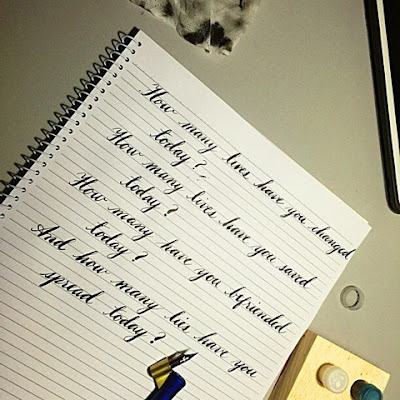 How many lives have you changed
today?
How many lives have you saved
today?
How many have you befriended
today?
And how many lies have you
spread today?